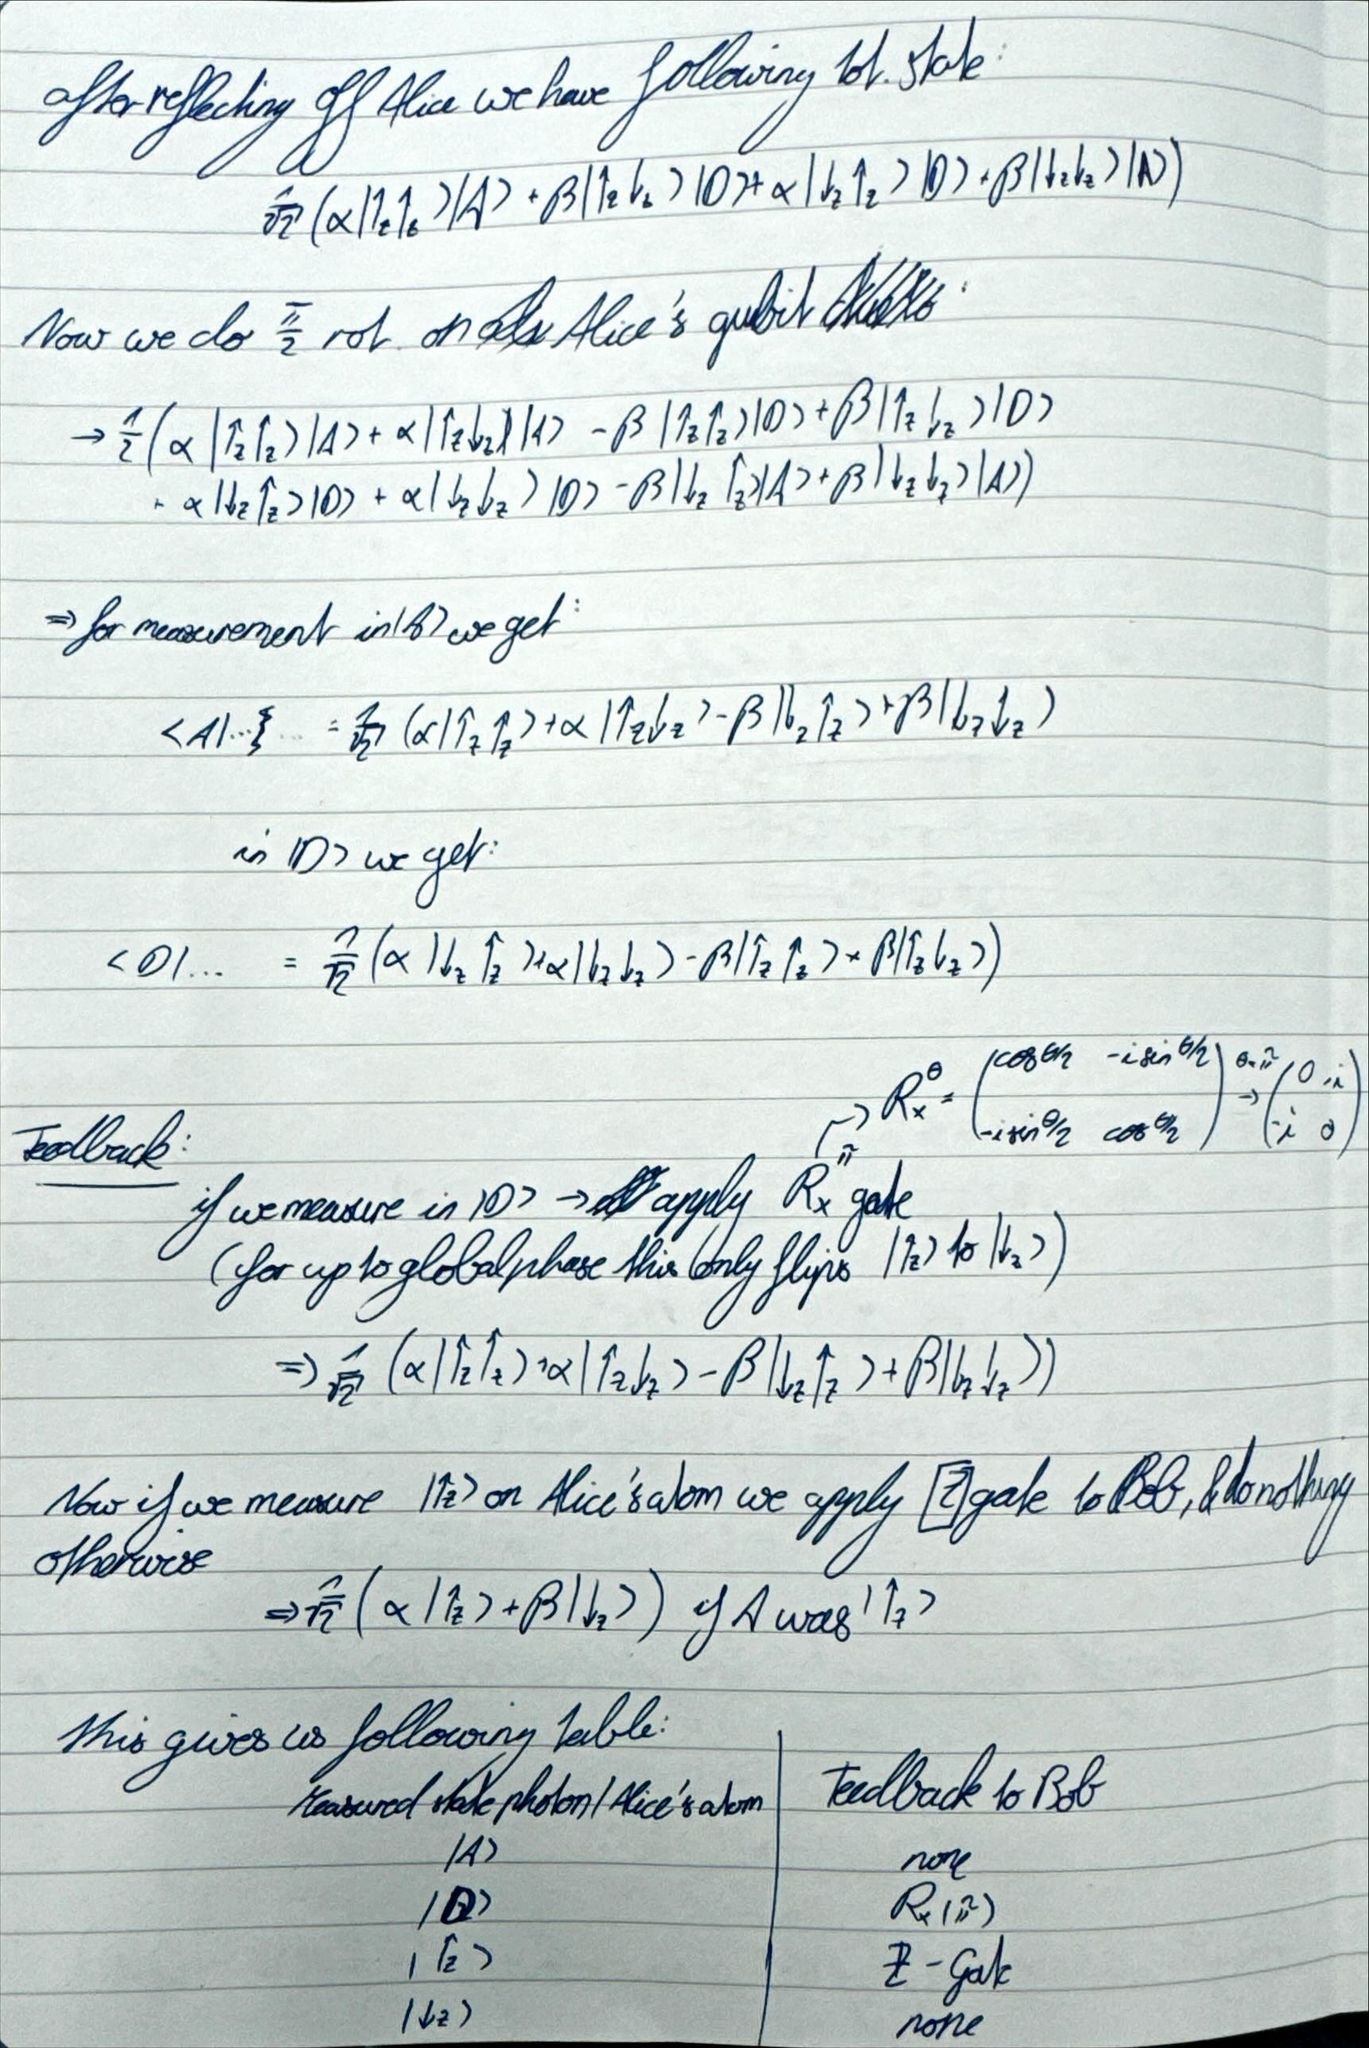 after reflecting off Alice we have following tot. state:
1/√2 (α|↑z↑z>|A> + β|↑z↓z>|D> + α|↓z↑z>|D> + β|↓z↓z>|A>)
Now we do π/2 rot. on Alice's qubit :
→ 1/2 (α|↑z↑z>|A> + α|↑z↓z>|A> - β|↑z↑z>|D> + β|↑z↓z>|D>
+ α|↓z↑z>|D> + α|↓z↓z>|D> - β|↓z↑z>|A> + β|↓z↓z>|A>)
⇒ for measurement in |A> we get:
<A|... = 1/√2 (α|↑z↑z> + α|↑z↓z> - β|↓z↑z> + β|↓z↓z>)
in |D> we get:
<D|... = 1/√2 (α|↓z↑z> + α|↓z↓z> - β|↑z↑z> + β|↑z↓z>)
→ Rx^θ = (cos θ/2 -i sin θ/2 ; -i sin θ/2 cos θ/2) θ=π → (0 -i ; -i 0)
Feedback:
if we measure in |D> → apply Rx^π gate
(for up to global phase this only flips |↑z> to |↓z>)
⇒ 1/√2 (α|↑z↑z> + α|↑z↓z> - β|↓z↑z> + β|↓z↓z>)
Now if we measure |↑z> on Alice's atom we apply [Z] gate to Bob, & do nothing
otherwise
⇒ 1/√2 (α|↑z> + β|↓z>) if A was |↑z>
this gives us following table:
Measured state photon / Alice's atom | Feedback to Bob
|A> | none
|D> | Rx(π)
|↑z> | Z - Gate
|↓z> | none